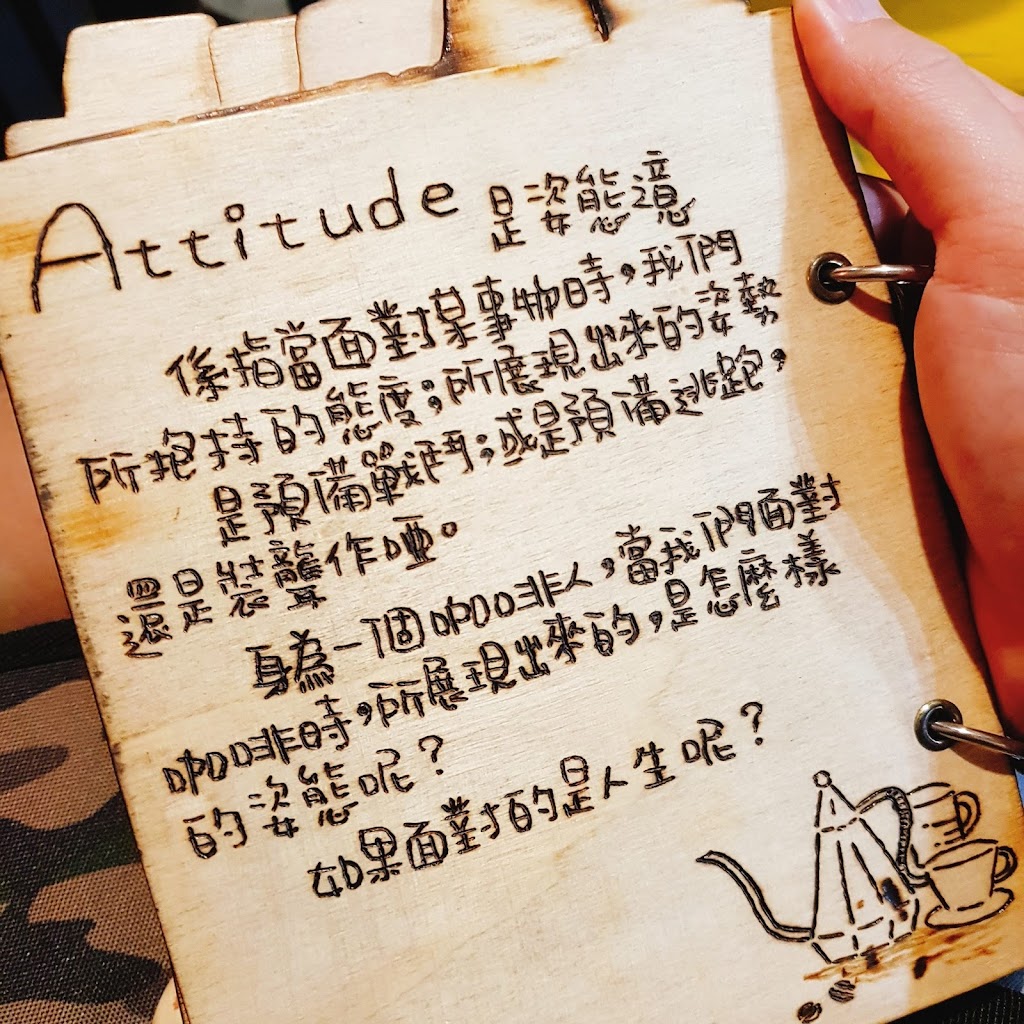 Attitude 是姿態邊
係指當面對某事物時，我們
所抱持的態度；所展現出來的姿勢
是預備戰鬥；或是預備逃跑，
還是裝聾作啞。
身為一個咖啡人，當我們面對
咖啡時，所展現出來的，是怎麼樣
的姿態呢？
如果面對的是人生呢？